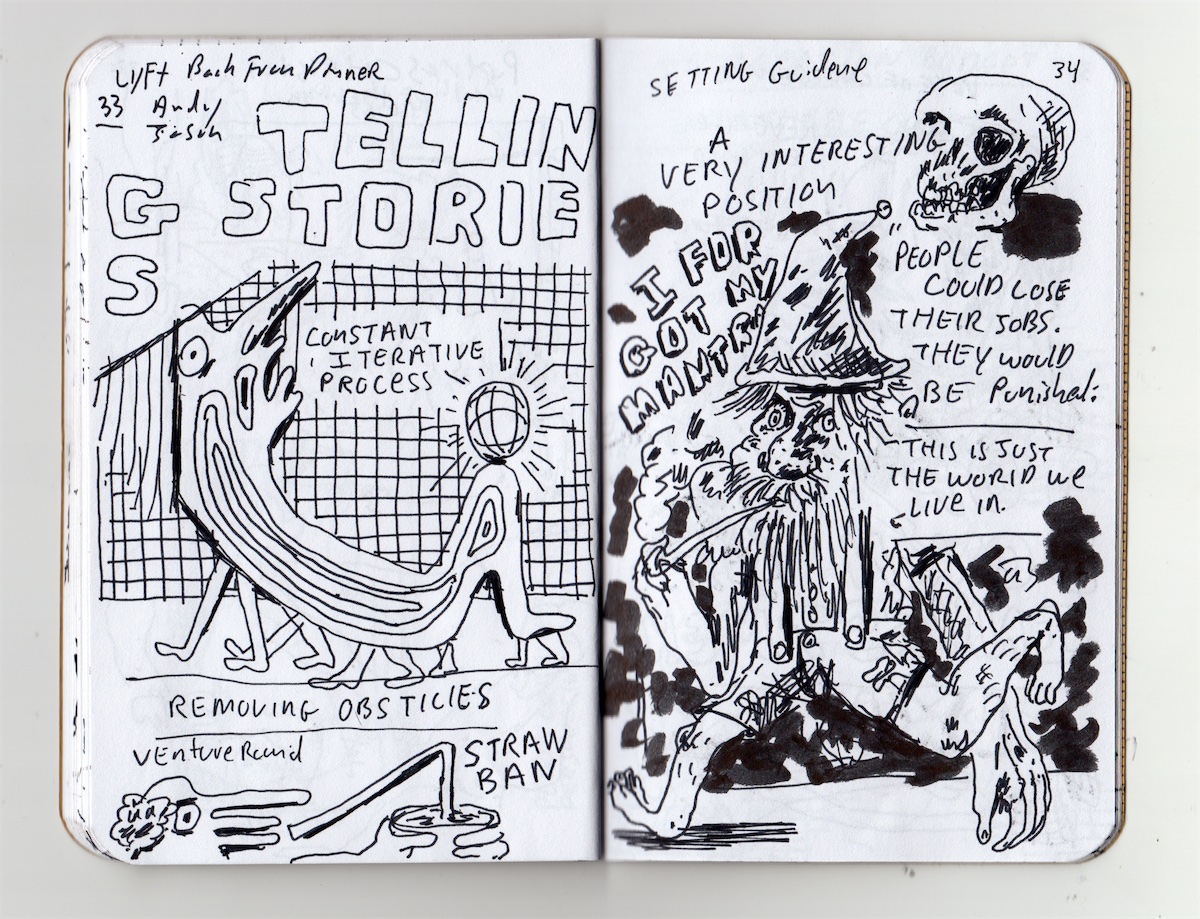 Lyft Back From Dinner
33 Andy
Jason
TELLIN
G STORIE
S
CONSTANT
ITERATIVE
PROCESS
REMOVING OBSTICLES
Venture
STRAW
BAN
SETTING
34
A
VERY INTERESTING
POSITION
I FOR
GOT MY
MANTRA
"PEOPLE
COULD LOSE
THEIR JOBS.
THEY WOULD
BE PUNISHED.
THIS IS JUST
THE WORLD WE
LIVE IN.